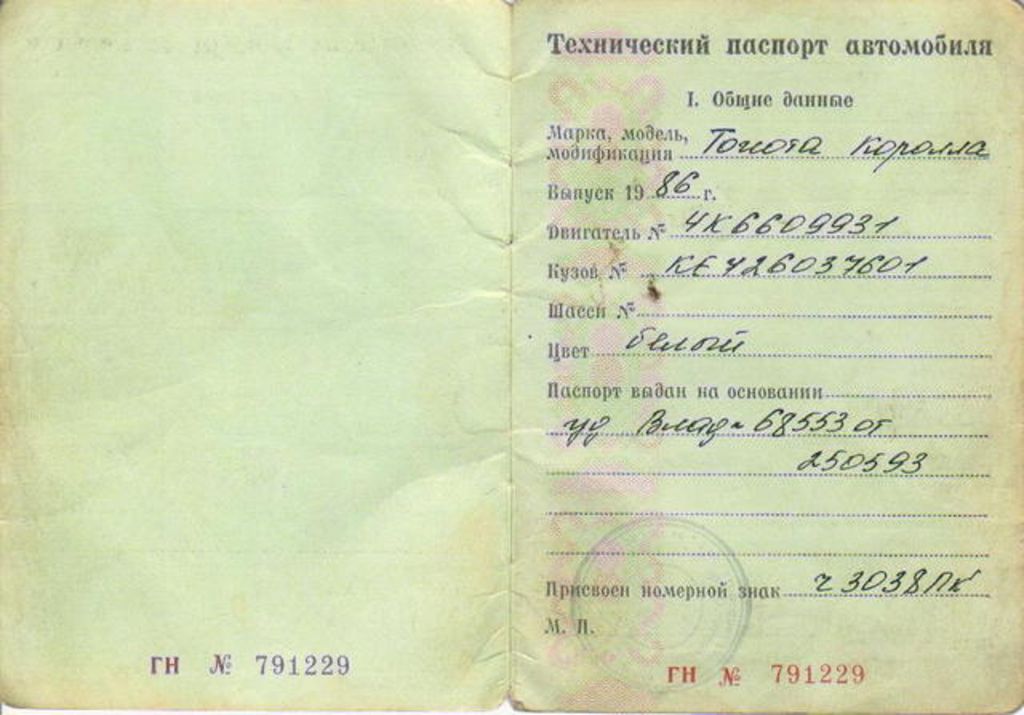 ГН № 791229
Технический паспорт автомобиля
I. Общие данные
Марка, модель, модификация Тойота Королла
Выпуск 19 86 г.
Двигатель № 4К6609931
Кузов № КЕ426037601
Шасси №
Цвет белый
Паспорт выдан на основании
уд Влад № 68553 от
250593
Присвоен номерной знак ч 3038 ПК
М. П.
ГН № 791229